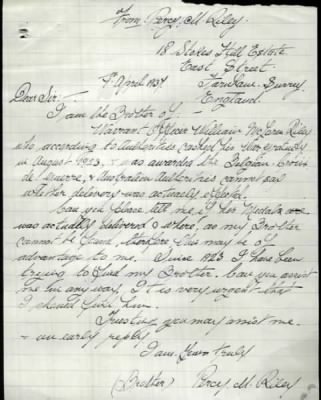 From Percy. M Riley
18 Stokes Hill Estate
East Street
Farnham. Surrey
9th April 1937. England.
Dear Sir:-
I am the Brother of:-
Warrant Officer William Riley
who according to Authorities cashed his War Gratuity
in August 1923, & was awarded the Belgian Croix
de Guerre, & Australian Authorities cannot say
whether delivery was actually effected.
Can you please tell me if his Medals
was actually delivered & where, as my Brother
cannot be found, therefore this may be of
advantage to me. Since 1923 I have been
trying to find my Brother. Can you assist
me in any way. It is very urgent that
I should find him.
Trusting you may assist me.
& an early reply
I am. Yours truly
(Brother) Percy. M. Riley